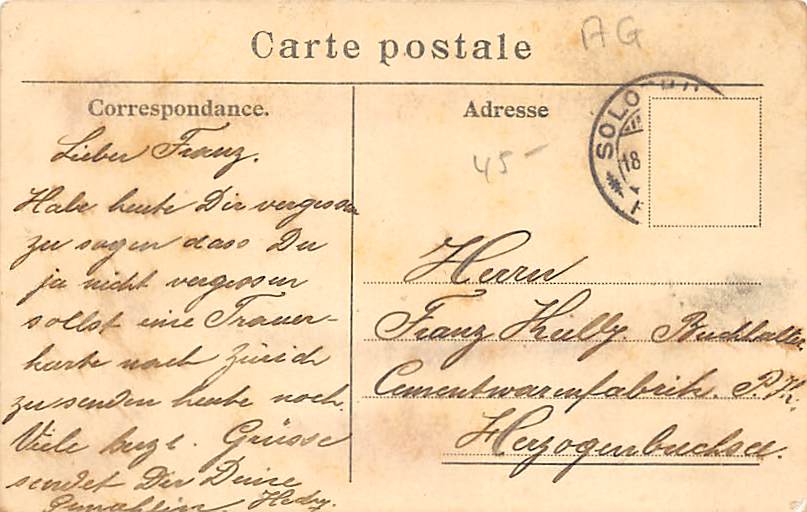 AG
Carte postale
Correspondance.
Adresse
SOLO
18
45-
Lieber Franz.
Habe heute Dir vergessen
zu sagen dass Du
ja nicht vergessen
sollst eine Trauer-
karte nach Zürich
zu senden heute noch.
Viele herzl. Grüsse
sendet Dir Deine
Gemahlin Hedy.
Herrn
Franz Buchhalter
Cementwarenfabrik.
Herzogenbuchsee.